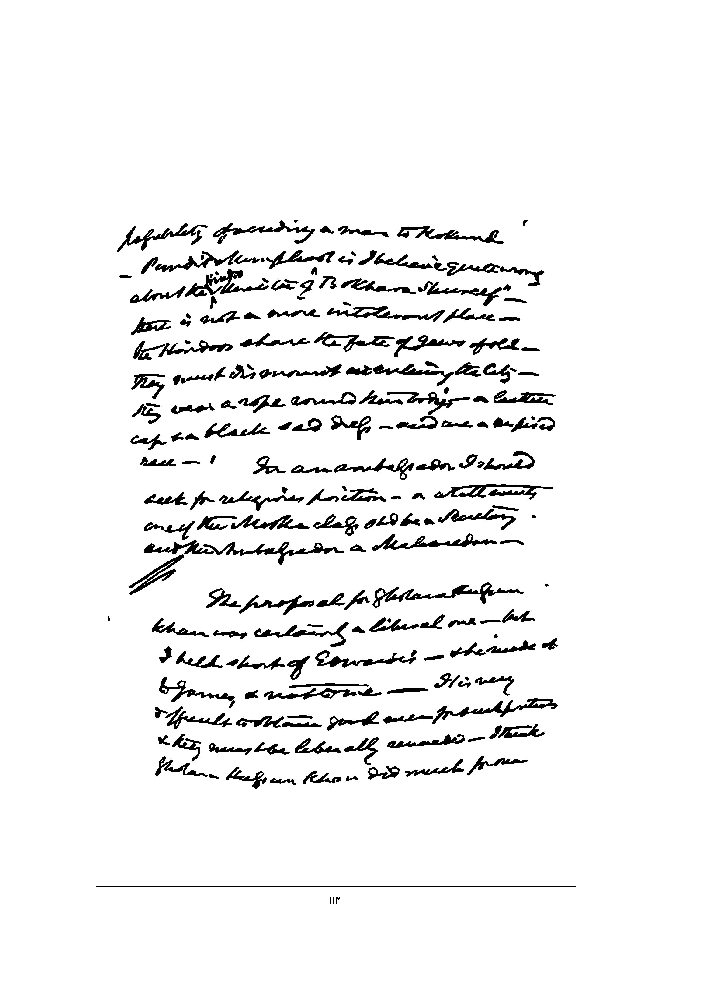 of sending a man to Kokund
– Pundit Munphool is I believe quite wrong
about the Hindoo of "Bokhara Shureef" –
there is not a more intolerant place –
the Hindoos share the fate of Jews of old –
they must dismount on entering the City –
they wear a rope round their bodies – a leather
cap & a black dress – and are a despised
race – ! For an ambassador I should
seek for religious position – a
one of the class be a Secretary
and the Ambassador a Mahomedan –
The proposal for Gholam Hussun
Khan was certainly a liberal one – but
I fell short of Edwardes's – & he made it
to James, & not to me – It is very
difficult to obtain good men for such
& they must be liberally rewarded – I think
Gholam Hussun Khan did much for our
۱۱۳